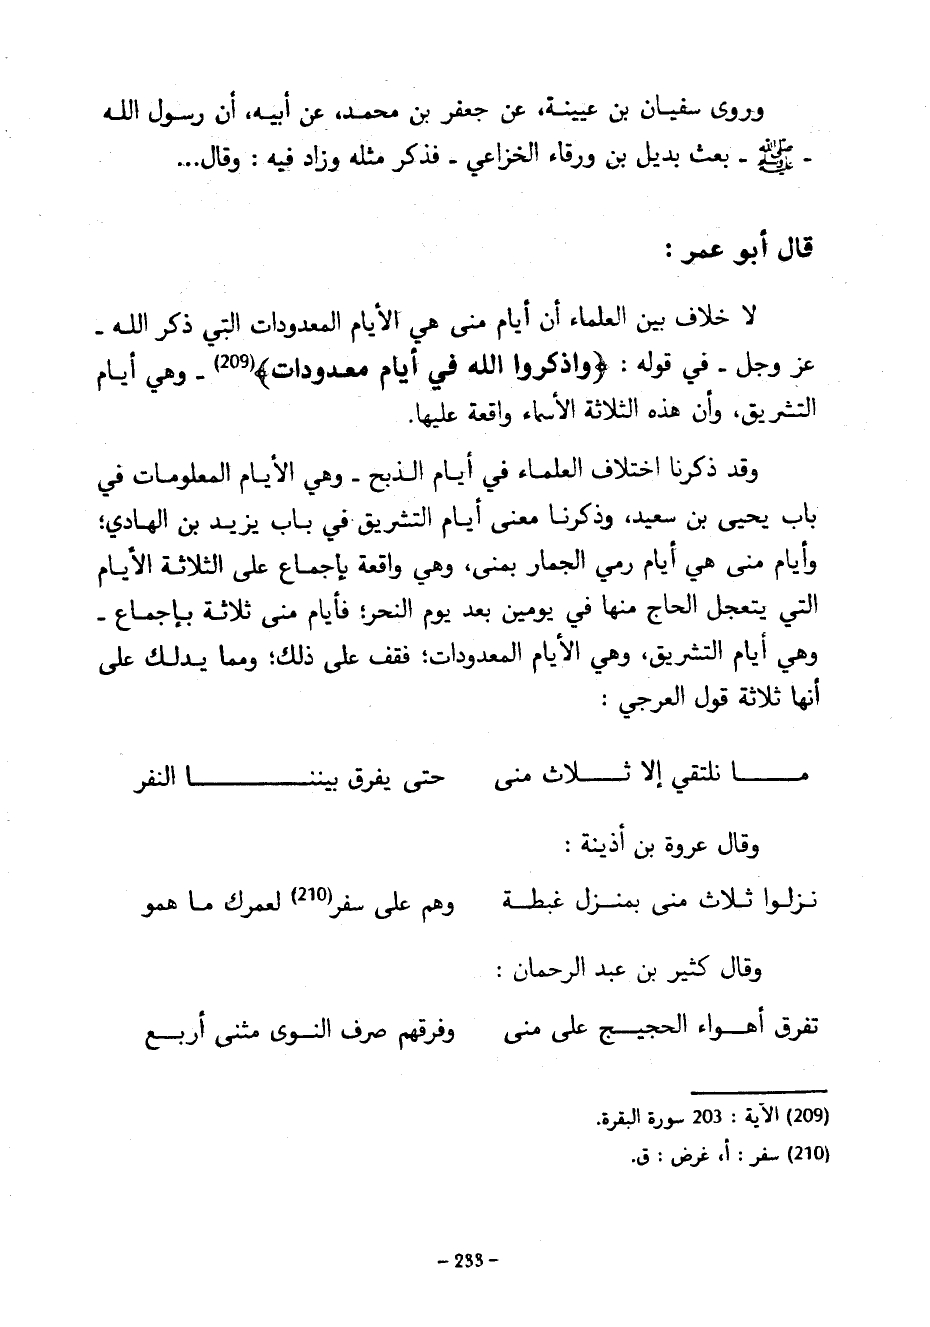 وروى سفيان بن عيينة، عن جعفر بن محمد، عن أبيه، أن رسول الله
ـ ﷺ ـ بعث بديل بن ورقاء الخزاعي ـ فذكر مثله وزاد فيه : وقال...
قال أبو عمر :
لا خلاف بين العلماء أن أيام منى هي الأيام المعدودات التي ذكر الله ـ
عز وجل ـ في قوله : ﴿واذكروا الله في أيام معدودات﴾(209) ـ وهي أيام
التشريق، وأن هذه الثلاثة الأسماء واقعة عليها.
وقد ذكرنا اختلاف العلماء في أيام الذبح ـ وهي الأيام المعلومات في
باب يحيى بن سعيد، وذكرنا معنى أيام التشريق في باب يزيد بن الهادي؛
وأيام منى هي أيام رمي الجمار بمنى، وهي واقعة بإجماع على الثلاثة الأيام
التي يتعجل الحاج منها في يومين بعد يوم النحر؛ فأيام منى ثلاثة بإجماع ـ
وهي أيام التشريق، وهي الأيام المعدودات؛ فقف على ذلك؛ ومما يدلك على
أنها ثلاثة قول العرجي :
ما نلتقي إلا ثلاث منى حتى يفرق بيننا النفر
وقال عروة بن أذينة :
نزلوا ثلاث منى بمنزل غبطة وهم على سفر(210) لعمرك ما همو
وقال كثير بن عبد الرحمان :
تفرق أهواء الحجيج على منى وفرقهم صرف النوى مثنى أربع
(209) الآية : 203 سورة البقرة.
(210) سفر : أ، غرض : ق.
- 233 -